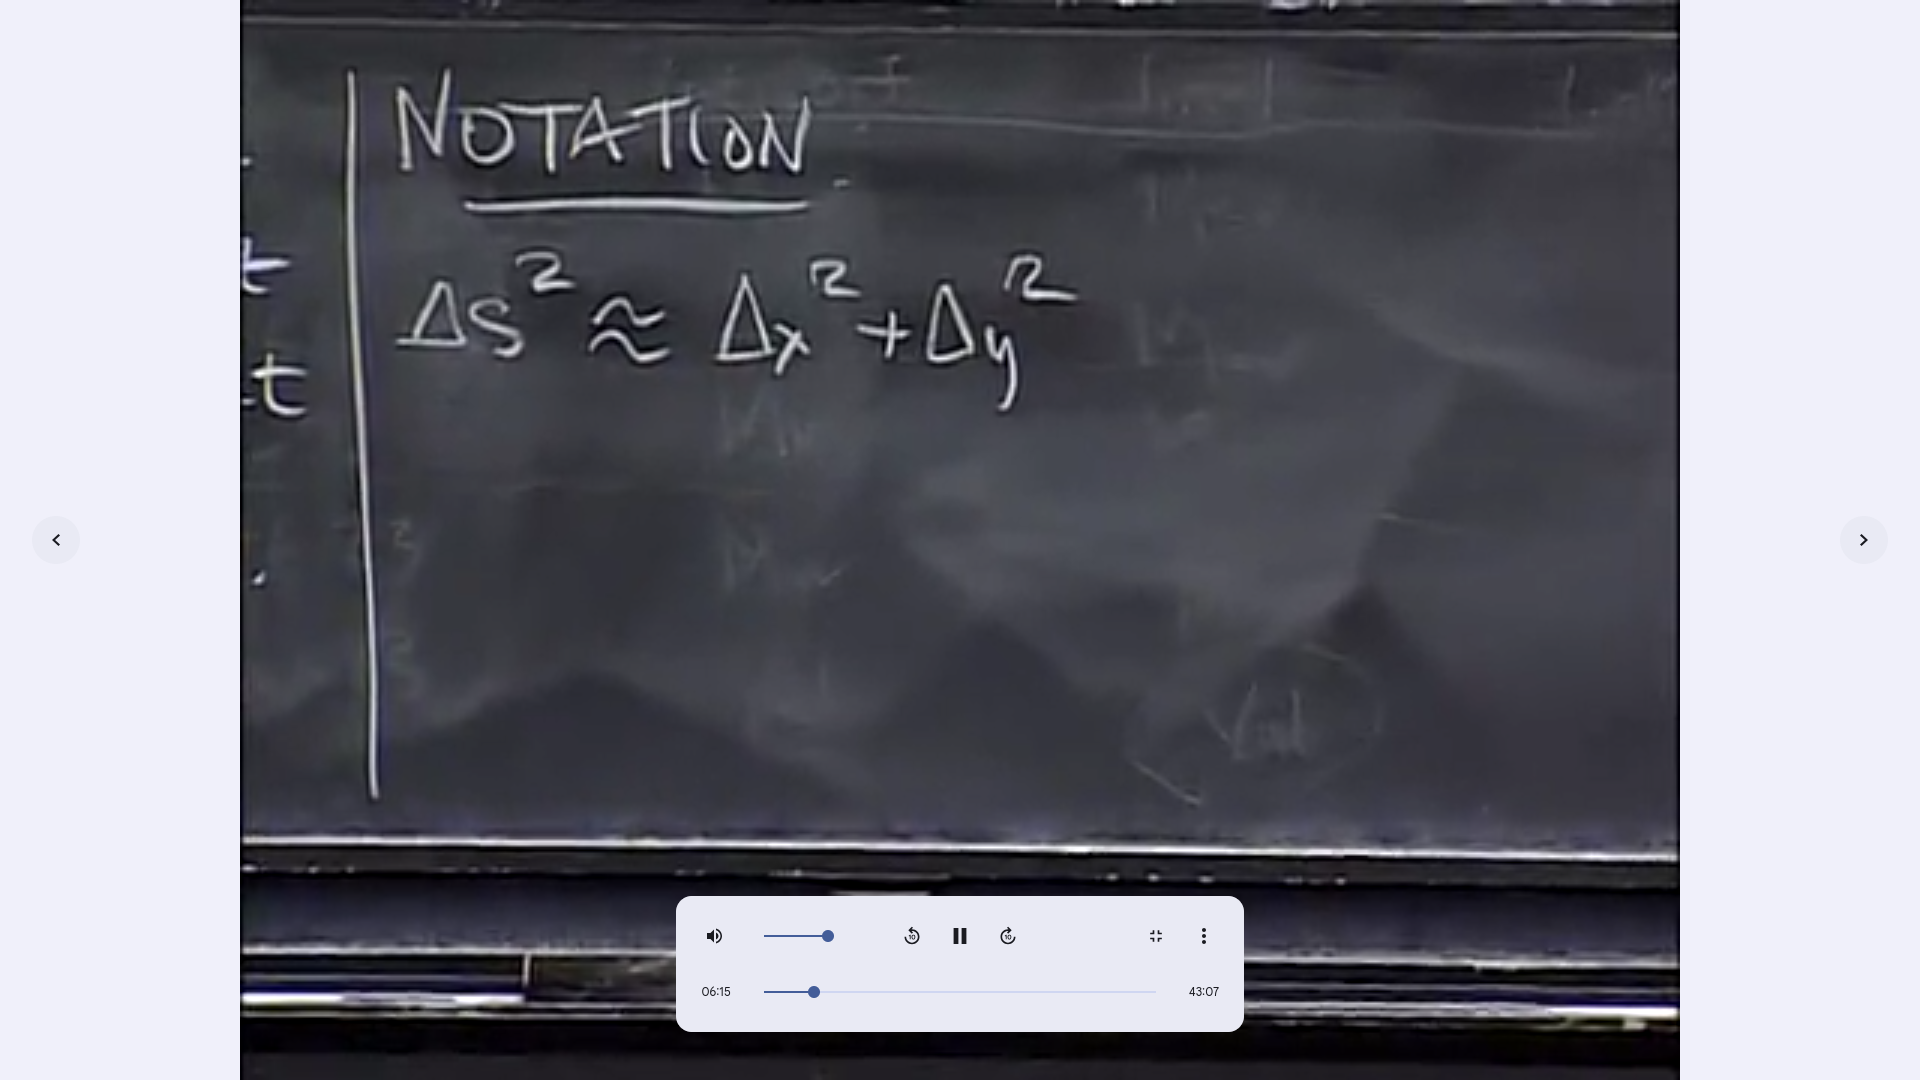 NOTATION
t
Δs² ≈ Δx² + Δy²
t
06:15
43:07